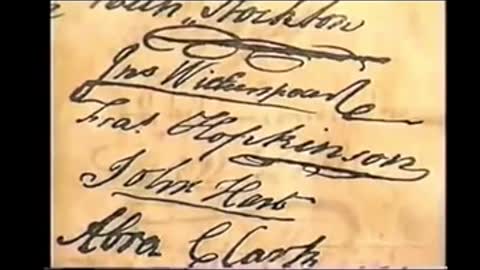 Stockton
Jno Witherspoon
Fras. Hopkinson
John Hart
Abra Clark